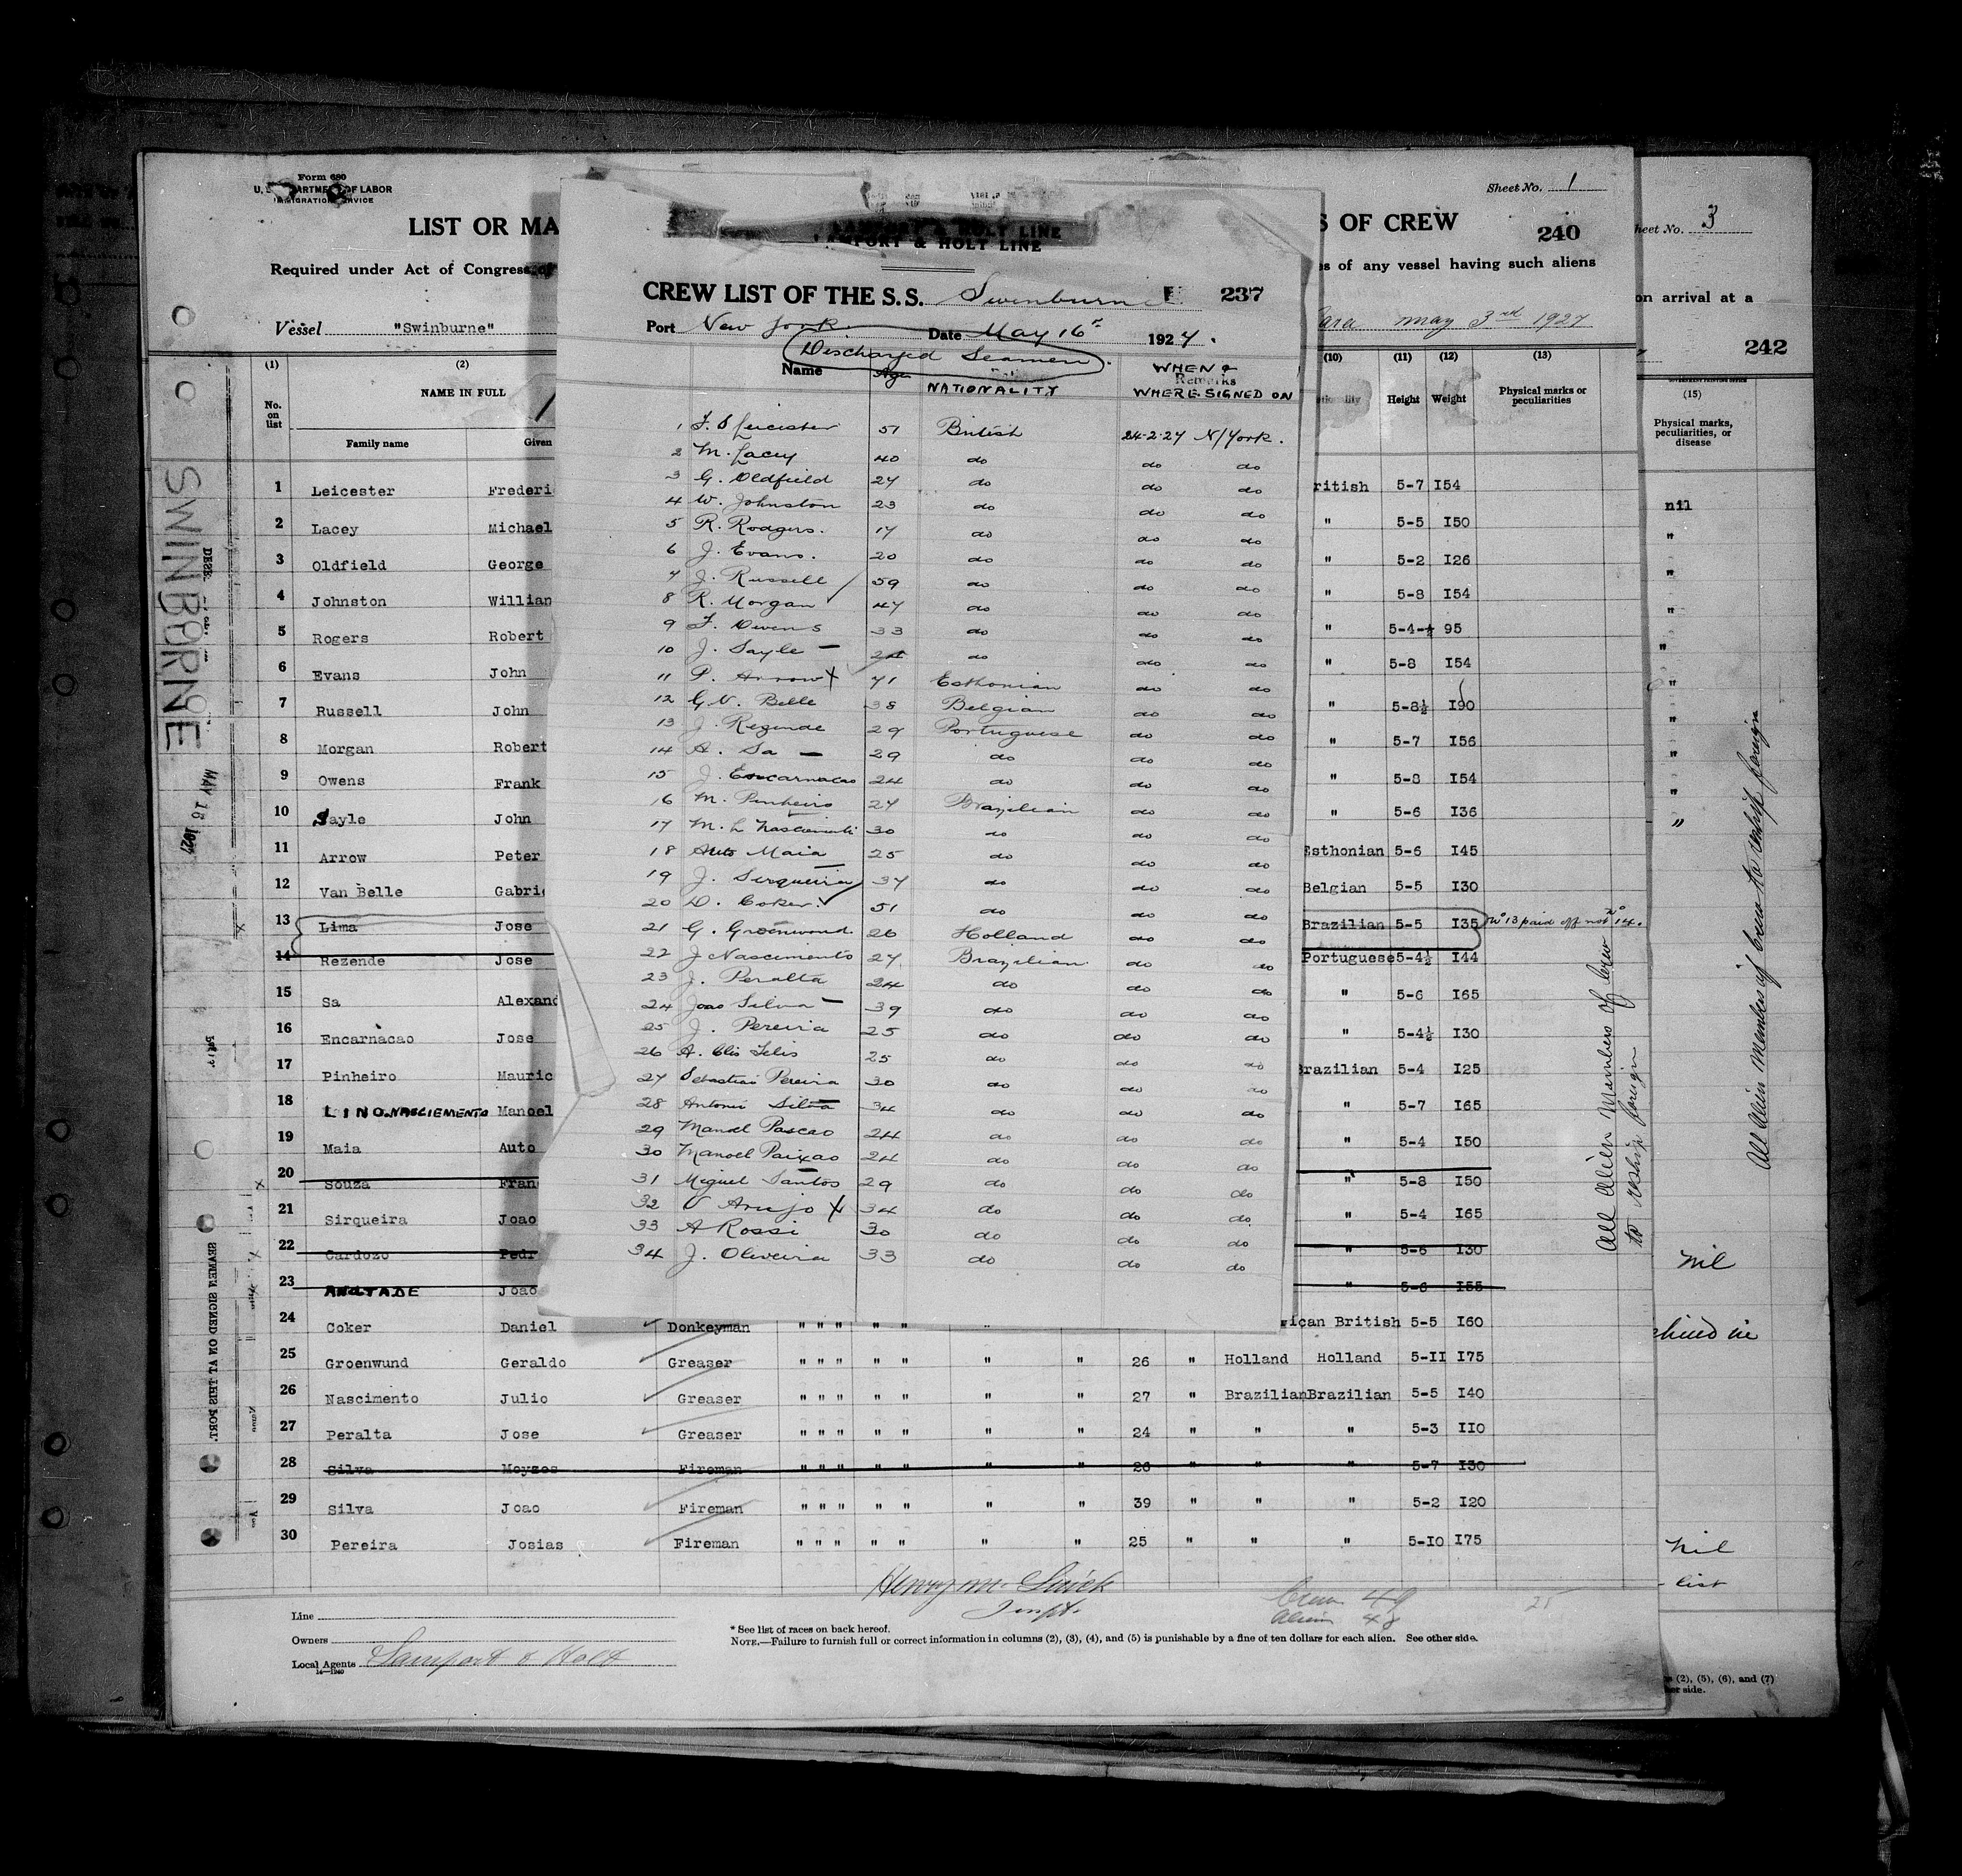 Form 680
U. S. DEPARTMENT OF LABOR
IMMIGRATION SERVICE
Sheet No. 1
LIST OR MA
S OF CREW
240
Required under Act of Congress
es of any vessel having such aliens
Vessel "Swinburne"
may 3rd 1927
(1) (2) (10) (11) (12) (13)
No. on list
NAME IN FULL
Family name
Given
Height
Weight
Physical marks or peculiarities
1 Leicester Frederi ritish 5-7 I54
2 Lacey Michael " 5-5 I50
3 Oldfield George " 5-2 I26
4 Johnston Willian " 5-8 I54
5 Rogers Robert " 5-4-½ 95
6 Evans John " 5-8 I54
7 Russell John " 5-8½ I90
8 Morgan Robert " 5-7 I56
9 Owens Frank " 5-8 I54
10 Sayle John " 5-6 I36
11 Arrow Peter Esthonian 5-6 I45
12 Van Belle Gabrie Belgian 5-5 I30
13 Lima Jose Brazilian 5-5 I35 No 13 paid off not No 14.
14 Rezende Jose Portuguese 5-4½ I44
15 Sa Alexand " 5-6 I65
16 Encarnacao Jose " 5-4½ I30
17 Pinheiro Mauric Brazilian 5-4 I25
18 LINO.NASCIEMENTO Manoel " 5-7 I65
19 Maia Auto " 5-4 I50
20 Souza Fran " 5-8 I50
21 Sirqueira Joao " 5-4 I65
22 Cardozo Pedr " 5-6 I30
23 ANDTADE Joao " 5-6 I55
24 Coker Daniel Donkeyman " " " " " " ican British 5-5 I60
25 Groenwund Geraldo Greaser " " " " " " " 26 " Holland Holland 5-II I75
26 Nascimento Julio Greaser " " " " " " " 27 " Brazilian Brazilian 5-5 I40
27 Peralta Jose Greaser " " " " " " " 24 " " " 5-3 II0
28 Silva Moyzes Fireman " " " " " " " 26 " " " 5-7 I30
29 Silva Joao Fireman " " " " " " " 39 " " " 5-2 I20
30 Pereira Josias Fireman " " " " " " " 25 " " " 5-I0 I75
All Alien Members of Crew
to reship foreign
Crew 49
Aliens 48
25
Line
Owners
Local Agents Lamport & Holt
14—1240
* See list of races on back hereof.
NOTE.—Failure to furnish full or correct information in columns (2), (3), (4), and (5) is punishable by a fine of ten dollars for each alien. See other side.
SWINBURNE
MAY 16 1927
SEAMEN SIGNED ON AT THIS PORT.
LAMPORT & HOLT LINE
LAMPORT & HOLT LINE
CREW LIST OF THE S.S. Swinburne
237
Port New York Date May 16th 1927.
Discharged Seamen.
Name Age NATIONALITY WHEN & Remarks WHERE. SIGNED ON
1 F. S Leicester 51 British 24-2-27 N/York.
2 M. Lacey 40 do do do
3 G. Oldfield 27 do do do
4 W. Johnston 23 do do do
5 R. Rodgers. 17 do do do
6 J. Evans. 20 do do do
7 J. Russell 59 do do do
8 R. Morgan 47 do do do
9 F. Owens 33 do do do
10 J. Sayle 24 do do do
11 P. Arrow 41 Esthonian do do
12 G V. Belle 38 Belgian do do
13 J. Rezende 29 Portuguese do do
14 A. Sa 29 do do do
15 J. Encarnacao 24 do do do
16 M. Pinheiro 27 Brazilian do do
17 M. L Nasciemento 30 do do do
18 Auto Maia 25 do do do
19 J. Sirqueira 37 do do do
20 D. Coker. 51 do do do
21 G. Groenwund 26 Holland do do
22 J Nascimento 27 Brazilian do do
23 J. Peralta 24 do do do
24 Joao Silva 39 do do do
25 J. Pereira 25 do do do
26 A. 25 do do do
27 Sebastiao Pereira 30 do do do
28 Antonio Silva 34 do do do
29 Manoel Pascao 24 do do do
30 Manoel Paixao 24 do do do
31 Miguel Santos 29 do do do
32 V Araujo 34 do do do
33 A Rossi 30 do do do
34 J. Oliveira 33 do do do
heet No. 3
on arrival at a
242
(15)
Physical marks, peculiarities, or disease
nil
All Alien Members of Crew to reship foreign
nil
nil
list
(2), (5), (6), and (7)
her side.